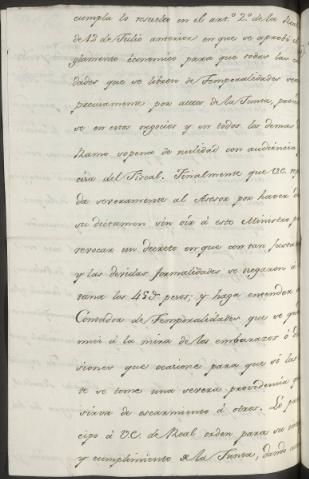 cumpla lo resuelto en el art.º 2.º de la Real
de 12 de Julio anterior en que se aprobó el
glamento económico para que todas las can
dades que se libren de Temporalidades sea
precisamente por autos de la Junta, provi
se en estos negocios y en todos los demas d
Ramo so pena de nulidad con audiencia
cisa del Fiscal. Finalmente que V.E. rep
da severamente al Asesor por haver d
su dictamen sin oír á este Ministro p
revocar un decreto en que con tan justa
y las devidas formalidades se negaron á
tana los 45 d. pesos; y haga entender a
Contador de Temporalidades que se que
mui á la mira de los embarazos ó de
siones que ocasione para que si las
te se tome una severa providencia q
sirva de escarmiento á otros. Lo par
cipo á V.E. de Real orden para su inte
y cumplimiento de la Junta, dando